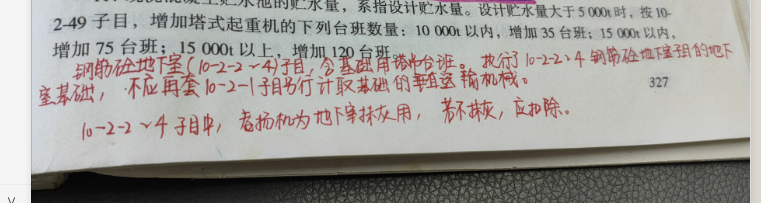 混凝土贮水池的贮水量，系指设计贮水量。设计贮水量大于5 000t时，按10-
2-49子目，增加塔式起重机的下列台班数量：10 000t以内，增加35台班；15 000t以内，
增加75台班；15 000t以上，增加120台班
钢筋砼地下室（10-2-2~4）子目，含基础用塔吊台班。执行了10-2-2~4钢筋砼地下室子目的地下
室基础，不应再套10-2-1子目另行计取基础的垂直运输机械。
327
10-2-2~4子目中，卷扬机为地下室抹灰用，若不抹灰，应扣除。